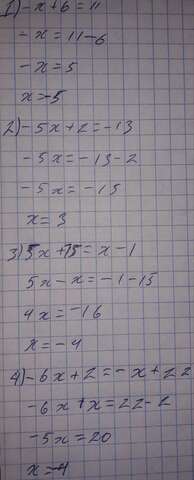 1) -x+6=11
-x=11-6
-x=5
x=-5
2) -5x+2=-13
-5x=-13-2
-5x=-15
x=3
3) 5x+15=x-1
5x-x=-1-15
4x=-16
x=-4
4) -6x+2=-x+22
-6x+x=22-2
-5x=20
x=-4